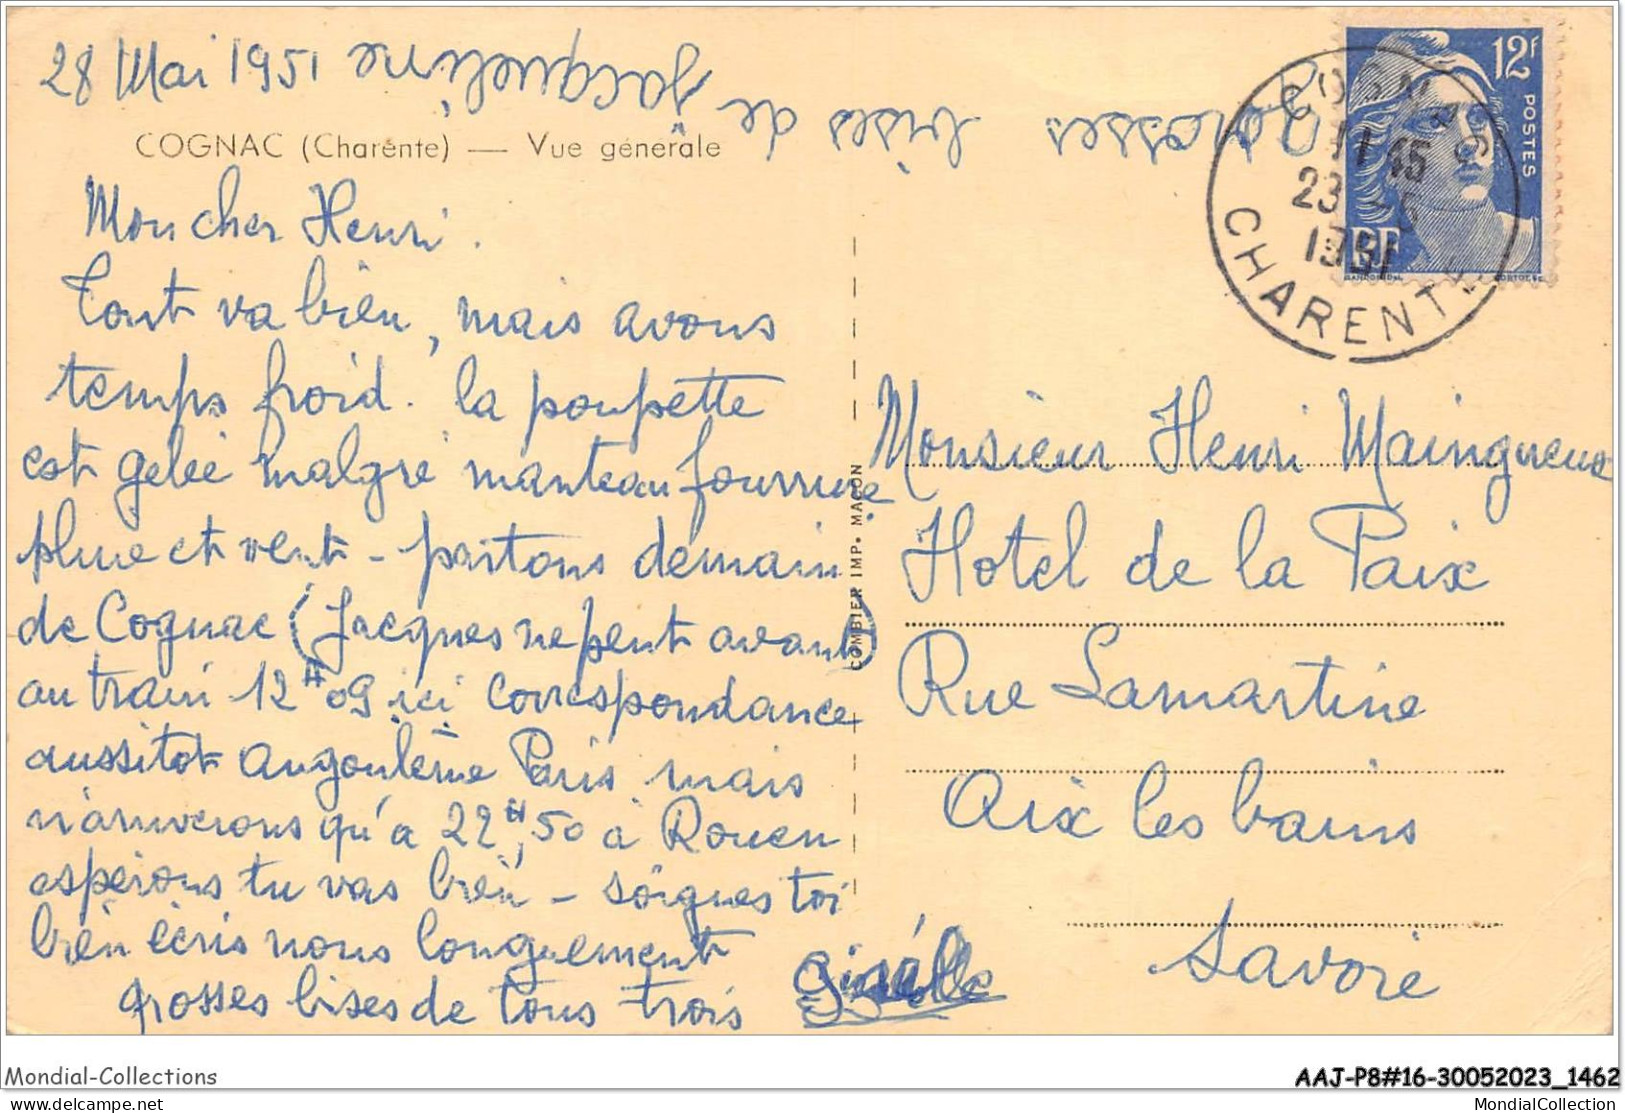 28 Mai 1951
grosses bises de Jacqueline
COGNAC (Charente) — Vue générale
Mon cher Henri.
Tout va bien, mais avons
temps froid. la poupette
est gelée malgré manteau fourrure
pluie et vent - partons demain
de Cognac (Jacques ne peut avant)
au train 12H09 ici correspondance
aussitot Angoulème Paris mais
n'arriverons qu'à 22H,50 à Rouen
espérons tu vas bien - soignes toi
bien écris nous longuement
grosses bises de tous trois
Gisèlle
COMBIER IMP. MACON
12F
POSTES
RF
COGNAC
11 45
23 -5
1951
CHARENTE
Monsieur Henri Maingueux
Hotel de la Paix
Rue Lamartine
Aix les bains
Savoie
Mondial-Collections
AAJ-P8#16-30052023_1462
delcampe.net
MondialCollection